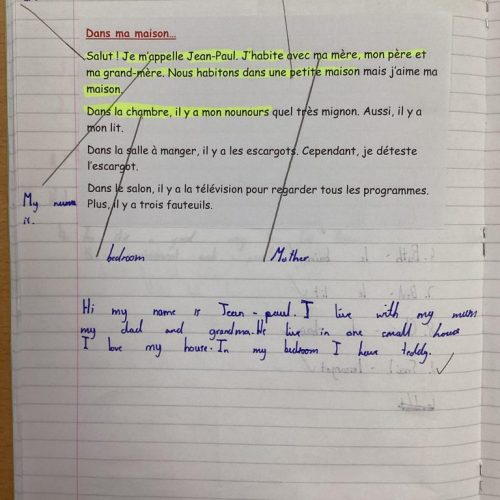 Dans ma maison...
Salut ! Je m'appelle Jean-Paul. J'habite avec ma mère, mon père et
ma grand-mère. Nous habitons dans une petite maison mais j'aime ma
maison.
Dans la chambre, il y a mon nounours quel très mignon. Aussi, il y a
mon lit.
Dans la salle à manger, il y a les escargots. Cependant, je déteste
l'escargot.
Dans le salon, il y a la télévision pour regarder tous les programmes.
Plus, il y a trois fauteuils.
My name
is.
bedroom
Mother
Hi my name is Jean-paul. I live with my mum
my dad and grandma. We live in one small house
I love my house. In my bedroom I have teddy.